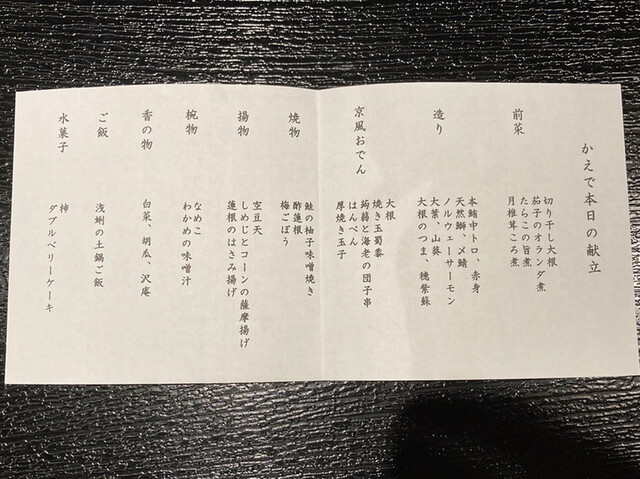 かえで本日の献立
前菜
切り干し大根
茄子のオランダ煮
たらこの旨煮
月椎茸ころ煮
造り
本鮪中トロ、赤身
天然鰤、〆鯖
ノルウェーサーモン
大葉、山葵
大根のつま、穂紫蘇
京風おでん
大根
焼き玉蜀黍
蒟蒻と海老の団子串
はんぺん
厚焼き玉子
焼物
鮭の柚子味噌焼き
酢蓮根
梅ごぼう
揚物
空豆天
しめじとコーンの薩摩揚げ
蓮根のはさみ揚げ
椀物
なめこ
わかめの味噌汁
香の物
白菜、胡瓜、沢庵
ご飯
浅蜊の土鍋ご飯
水菓子
柿
ダブルベリーケーキ